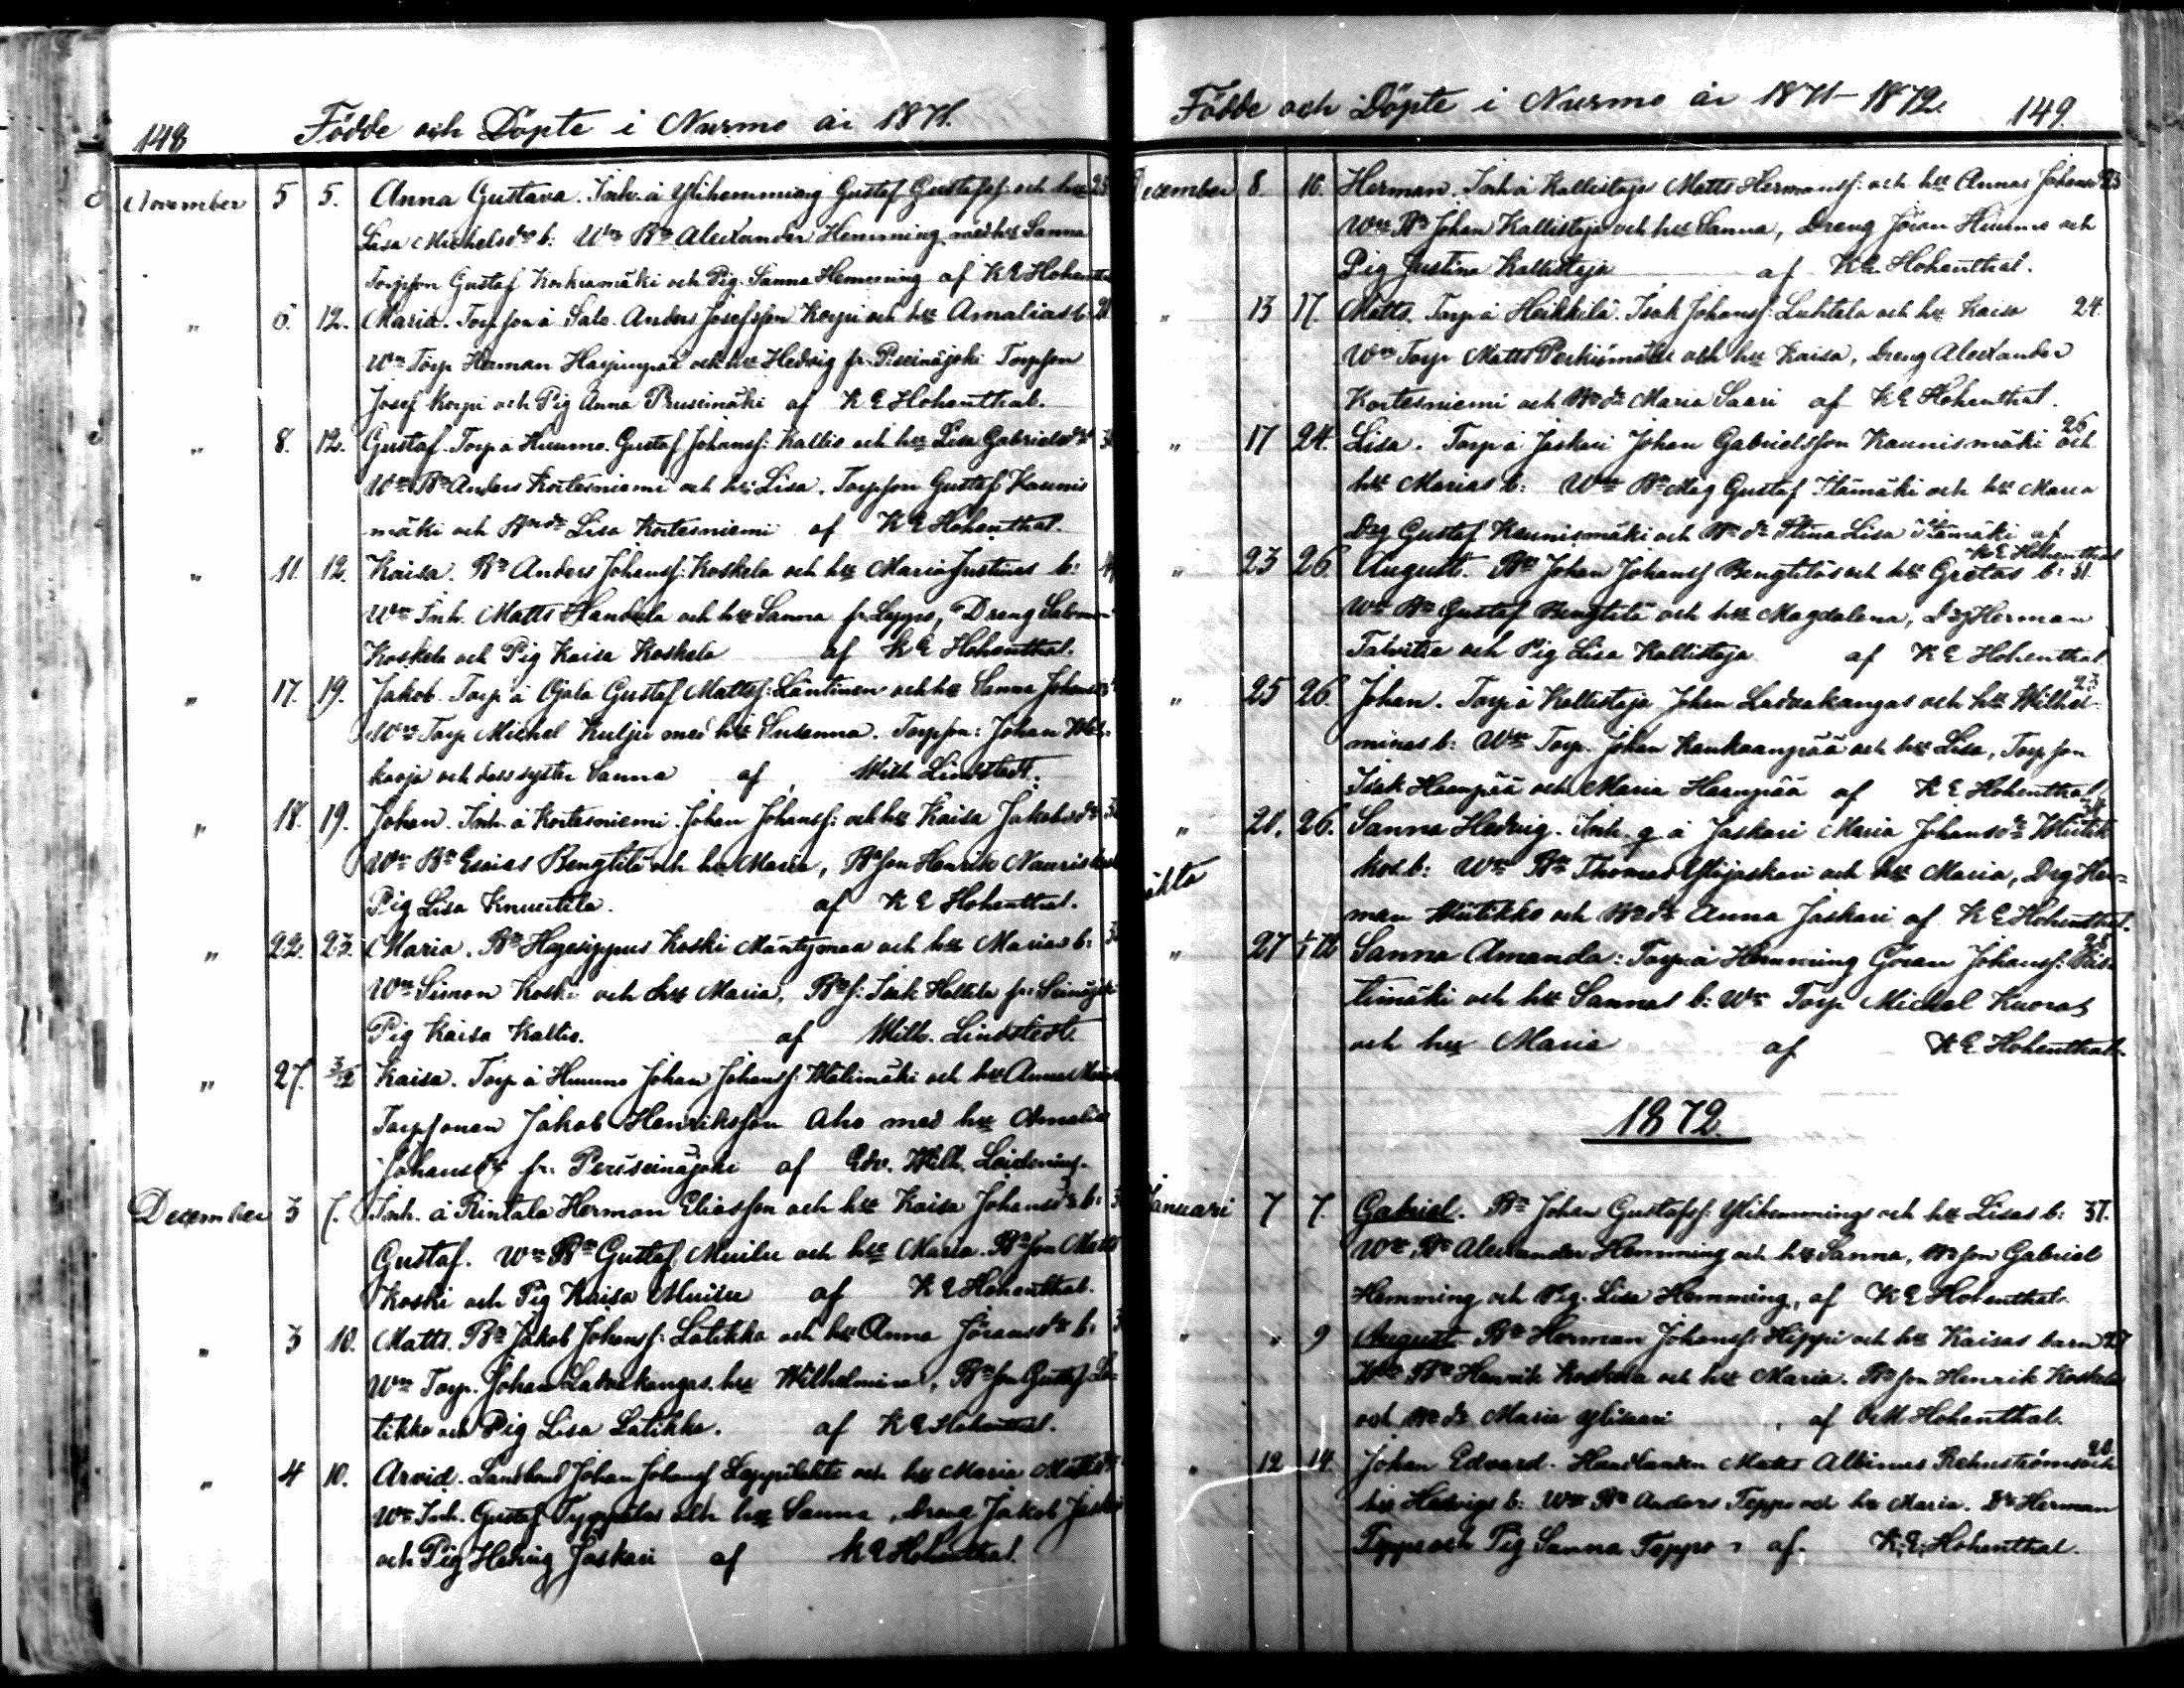 148 Födde och Döpte i Nurmo år 1871.
November 5 5. Anna Gustava. Inh. å Ylihemming Gustaf Gustafsf: och hu
Lisa Michelsdr b: Wn Bn Alexander Hemming med hu Sanna
Torpson Gustaf Koskiamäki och Pig. Sanna Hemming af K E Hohenthal
" 6. 12. Maria. Torpson å Salo Anders Josefsson Korpi och hu Amalias b.
Wn Torp Herman Harjunpää och hu Hedvig fr. Pseinäjoki Torpson
Josef Korpi och Pig Anna Pruseinäki af K E Hohenthal.
" 8. 12. Gustaf. Torp å Huumo. Gustaf Johansf: Kallio och hu Lisa Gabrielsdr
Wn Bn Anders Kortesniemi och hu Lisa. Torpson Gustaf Kaunis
mäki och Bndr Lisa Kortesniemi af K E Hohenthal.
" 11. 12. Kaisa. Bn Anders Johansf: Koskela och hu Maria Justinas b:
Wn Inh. Matts Handula och hu Sanna fr. Lappo, Dreng Salomon
Koskela och Pig Kaisa Koskela af K E Hohenthal.
" 17. 19. Jakob. Torp å Ojala Gustaf Mattsf: Läntinen och hu Sanna Johans
Wn Torp Michel Kulju med hu Susanna. Torpson: Johan
kaoja och dess syster Sanna af Wilh. Lindstedt.
" 18. 19. Johan. Inh. å Kortesniemi. Johan Johansf: och hu Kaisa Jakobsdr
Wn Bn Esaias Bengtilä och hu Maria, Bnson Henrik Nauris
Pig Lisa Knuutila. af K E Hohenthal.
" 22. 23. Maria. Bn Hegesippus Koski Mäntymaa och hu Marias b:
Wn Simon Koski och hu Maria, Bnsf: Isak Hallila fr: Seinäjoki
Pig Kaisa Kallio. af Wilh. Lindstedt.
" 27. 3/12 Kaisa. Torp å Huumo Johan Johansf: Wälimäki och hu Anna
Torpsonen Jakob Henriksson Aho med hu Amalia
Johansdr fr. Perässeinäjoki af Edv. Wilh.
December 3 7. Inh. å Rintala Herman Eliasson och hu Kaisa Johansdr b:
Gustaf. Wn Bn Gustaf Muilu och hu Maria. Bnson Matts
Koski och Pig Kaisa Muilu af K E Hohenthal.
" 3 10. Matts. Bn Jakob Johansf: Latikka och hu Anna Jöransdr b:
Wn Torp. Johan Latvakangas. hu Wilhelmina, Bnson Gustaf La-
tikka och Pig Lisa Latikka. af K E Hohenthal.
" 4 10. Arvid. Landbond Johan Johansf Leppilahti och hu Maria Mattsdr
Wn Inh. Gustaf och hu Sanna, Dreng Jakob Jaskari
och Pig Hedvig Jaskari af K E Hohenthal
Födde och Döpte i Nurmo år 1871-1872. 149.
December 8. 10. Herman. Inh å Kallistaja Matts Hermansf: och hu Annas Johans 23
Wn Bn Johan Kallistaja och hu Sanna, Dreng Jöran Huumo och
Pig Justina Kallistaja af K E Hohenthal.
" 13 17. Matts. Torp å Heikkilä. Isak Johansf: Luhtala och hu Kaisa 24.
Wn Torp Matts Perkiömäki och hu Kaisa, Dreng Alexander
Kortesniemi och Bndr Maria Saari af K E Hohenthal.
" 17 24. Lisa. Torp å Jaskari Johan Gabrielsson Kaunismäki och 26
hu Marias b: Wn Bn Måg Gustaf Itämäki och hu Maria
Drg Gustaf Kaunismäki och Bndr Stina Lisa Itämäki af
K E Hohenthal
" 23 26. August. Bn Johan Johansf Bengtiläs och hu Gretas b: 31.
Wn Bn Gustaf Bengtilä och hu Magdalena, Drg Herman
Talvitie och Pig Lisa Kallistaja af K E Hohenthal
" 25 26. Johan. Torp å Kallistaja Johan Ladvakangas och hu Wilhel- 23.
minas b: Wn Torp. Johan Kankaanpää och hu Lisa, Torpson
Isak Haanpää och Maria Haanpää af K E Hohenthal
" 21. 26. Sanna Hedvig. Inh. q. å Jaskari Maria Johansdr Wiitik
kos b: Wn Bn Thomas Ylijaskari och hu Maria, Drg Her-
man Wiitikko och Bndr Anna Jaskari af K E Hohenthal.
" 27 1/1 72 Sanna Amanda: Torp. å Hemming Göran Johansf: Väsä
timäki och hu Sannas b: Wn Torp Michel Kuoras
och hu Maria af K E Hohenthal.
1872.
Januari 7 7. Gabriel. Bn Johan Gustafsf: Ylihemmings och hu Lisas b: 37.
Wn, Bn Alexander Hemming och hu Sanna, Bnson Gabriel
Hemming och Pig. Lisa Hemming, af K E Hohenthal.
" " 9 August. Bn Herman Johansf: Hippi och hu Kaisas barn 27
Wn Bn Henrik Koskela och hu Maria. Bnson Henrik Koskela
och Bndr Maria Ylisaari, af K E Hohenthal.
" 12 14. Johan Edvard. Handlanden Matts Albinus Rehnströms och 28.
hu Hedvigs b: Wn Bn Anders Teppo och hu Maria. Dr Herman
Teppo och Pig Sanna Teppo, af K. E. Hohenthal.